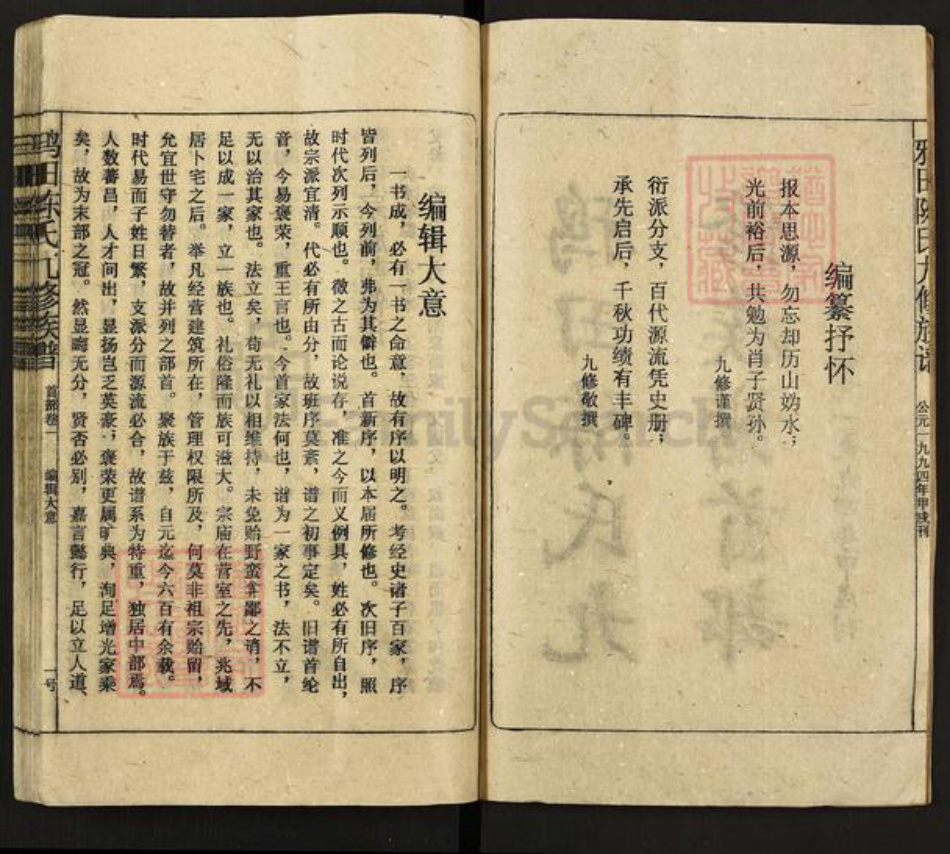 编纂抒怀
报本思源，勿忘却历山妫水；
光前裕后，共勉为肖子贤孙。
九修谨撰
衍派分支，百代源流凭史册；
承先启后，千秋功绩有丰碑。
九修敬撰
公元一九九四年甲戌刊
编辑大意
一书成，必有一书之命意，故有序以明之。考经史诸子百家，序
皆列后，今列前，弗为其僻也。首新序，以本届所修也。次旧序，照
时代次列示顺也。微之古而论说存，准之今而义例具，姓必有所自出，
故宗派宜清。代必有所由分，故班序莫紊，谱之初事定矣。旧谱首纶
音，今易褒荣，重王言也。今首家法何也，谱为一家之书，法不立，
无以治其家也。法立矣，苟无礼以相维持，未免贻野蛮弇鄙之诮，不
足以成一家，立一族也。礼俗隆而族可滋大。宗庙在营室之先，兆域
居卜宅之后。举凡经营建筑所在，管理权限所及，何莫非祖宗贻留，
允宜世守勿替者，故并列之部首。聚族于兹，自元迄今六百有余载。
时代易而子姓日繁，支派分而源流必合，故谱系为特重，独居中部焉。
人数蕃昌，人才间出，显扬岂乏英豪，褒荣更属旷典，洵足增光家乘
矣，故为末部之冠。然显晦无分，贤否必别，嘉言懿行，足以立人道、
陈氏九修族谱
首部卷一
编辑大意
一号
FamilySearch